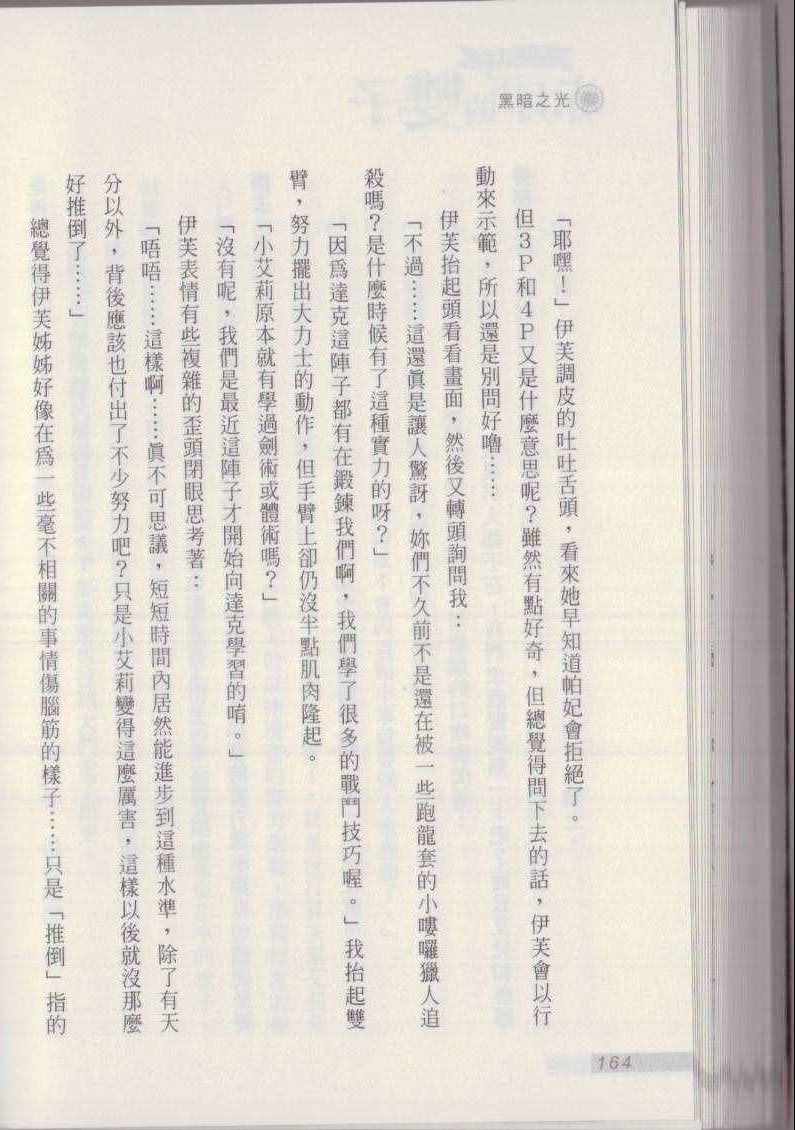 黑暗之光
「耶嘿！」伊芙調皮的吐吐舌頭，看來她早知道帕妃會拒絕了。
但3P和4P又是什麼意思呢？雖然有點好奇，但總覺得問下去的話，伊芙會以行
動來示範，所以還是別問好嚕……
伊芙抬起頭看看畫面，然後又轉頭詢問我：
「不過……這還真是讓人驚訝，妳們不久前不是還在被一些跑龍套的小嘍囉獵人追
殺嗎？是什麼時候有了這種實力的呀？」
「因為達克這陣子都有在鍛鍊我們啊，我們學了很多的戰鬥技巧喔。」我抬起雙
臂，努力擺出大力士的動作，但手臂上卻仍沒半點肌肉隆起。
「小艾莉原本就有學過劍術或體術嗎？」
「沒有呢，我們是最近這陣子才開始向達克學習的唷。」
伊芙表情有些複雜的歪頭閉眼思考著：
「唔唔……這樣啊……真不可思議，短短時間內居然能進步到這種水準，除了有天
分以外，背後應該也付出了不少努力吧？只是小艾莉變得這麼厲害，這樣以後就沒那麼
好推倒了……」
總覺得伊芙姊姊好像在為一些毫不相關的事情傷腦筋的樣子……只是「推倒」指的
164